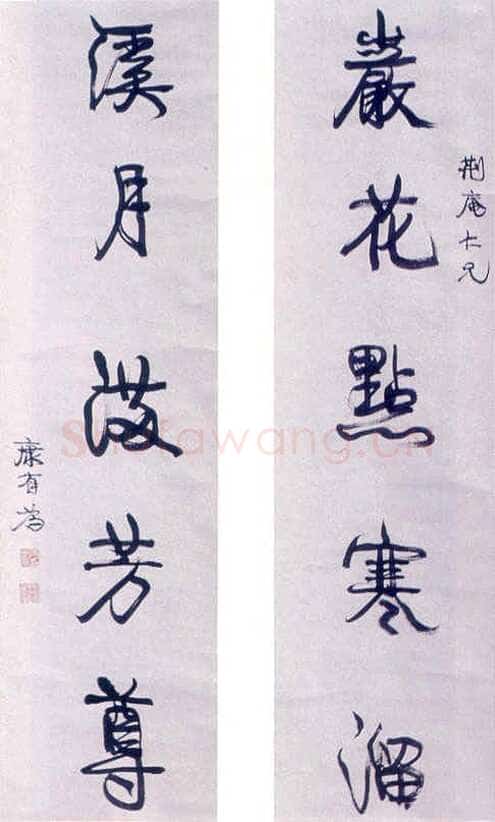 荊庵仁兄
巖花點寒溜
溪月芳尊
康有為
Shufawang.cn